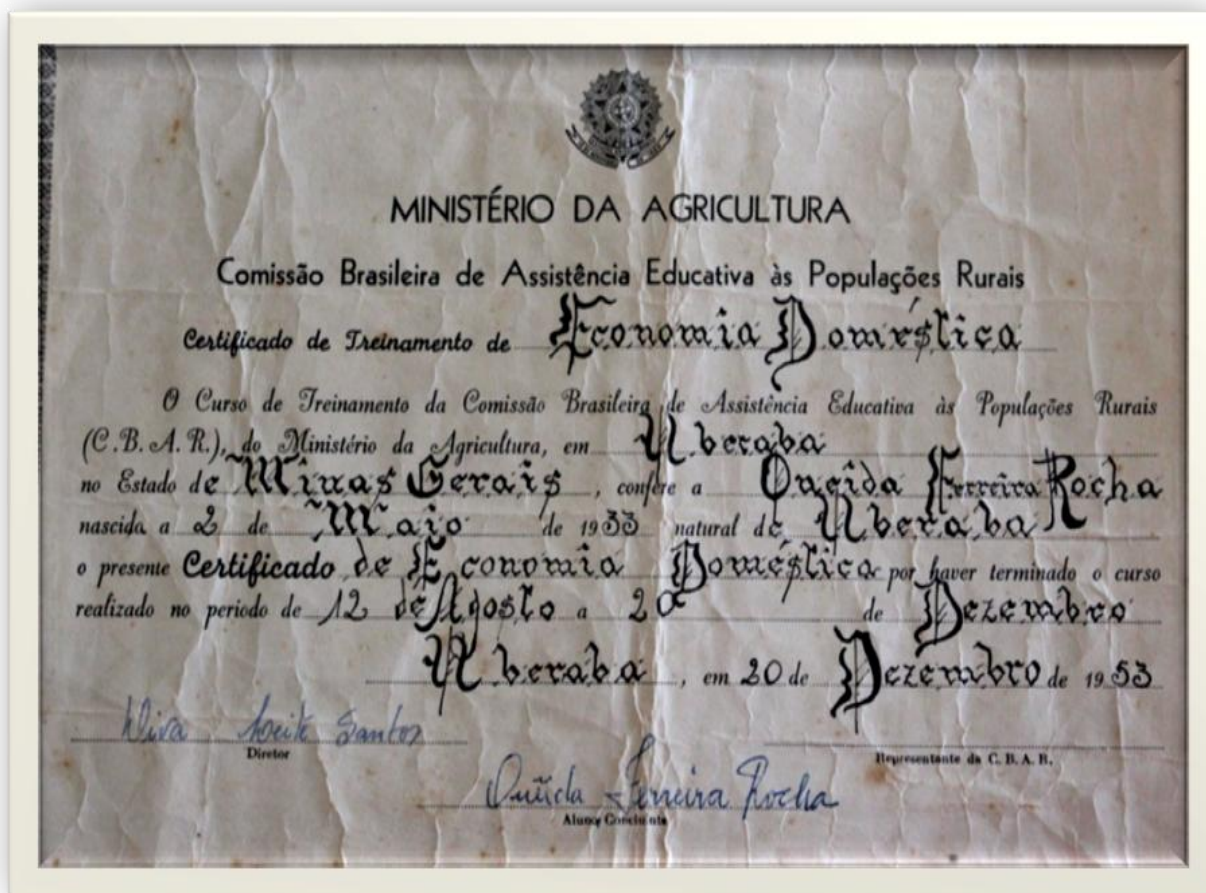 MINISTÉRIO DA AGRICULTURA
Comissão Brasileira de Assistência Educativa às Populações Rurais
Certificado de Treinamento de Economia Doméstica
O Curso de Treinamento da Comissão Brasileira de Assistência Educativa às Populações Rurais
(C.B.A.R.), do Ministério da Agricultura, em Uberaba
no Estado de Minas Gerais, confere a Oneida Ferreira Rocha
nascida a 2 de Maio de 1933 natural de Uberaba
o presente Certificado de Economia Doméstica por haver terminado o curso
realizado no período de 12 de Agosto a 20 de Dezembro
Uberaba, em 20 de Dezembro de 1953
Leite Santos
Diretor
Representante da C. B. A. R.
Oneida Ferreira Rocha
Aluno Concluinte